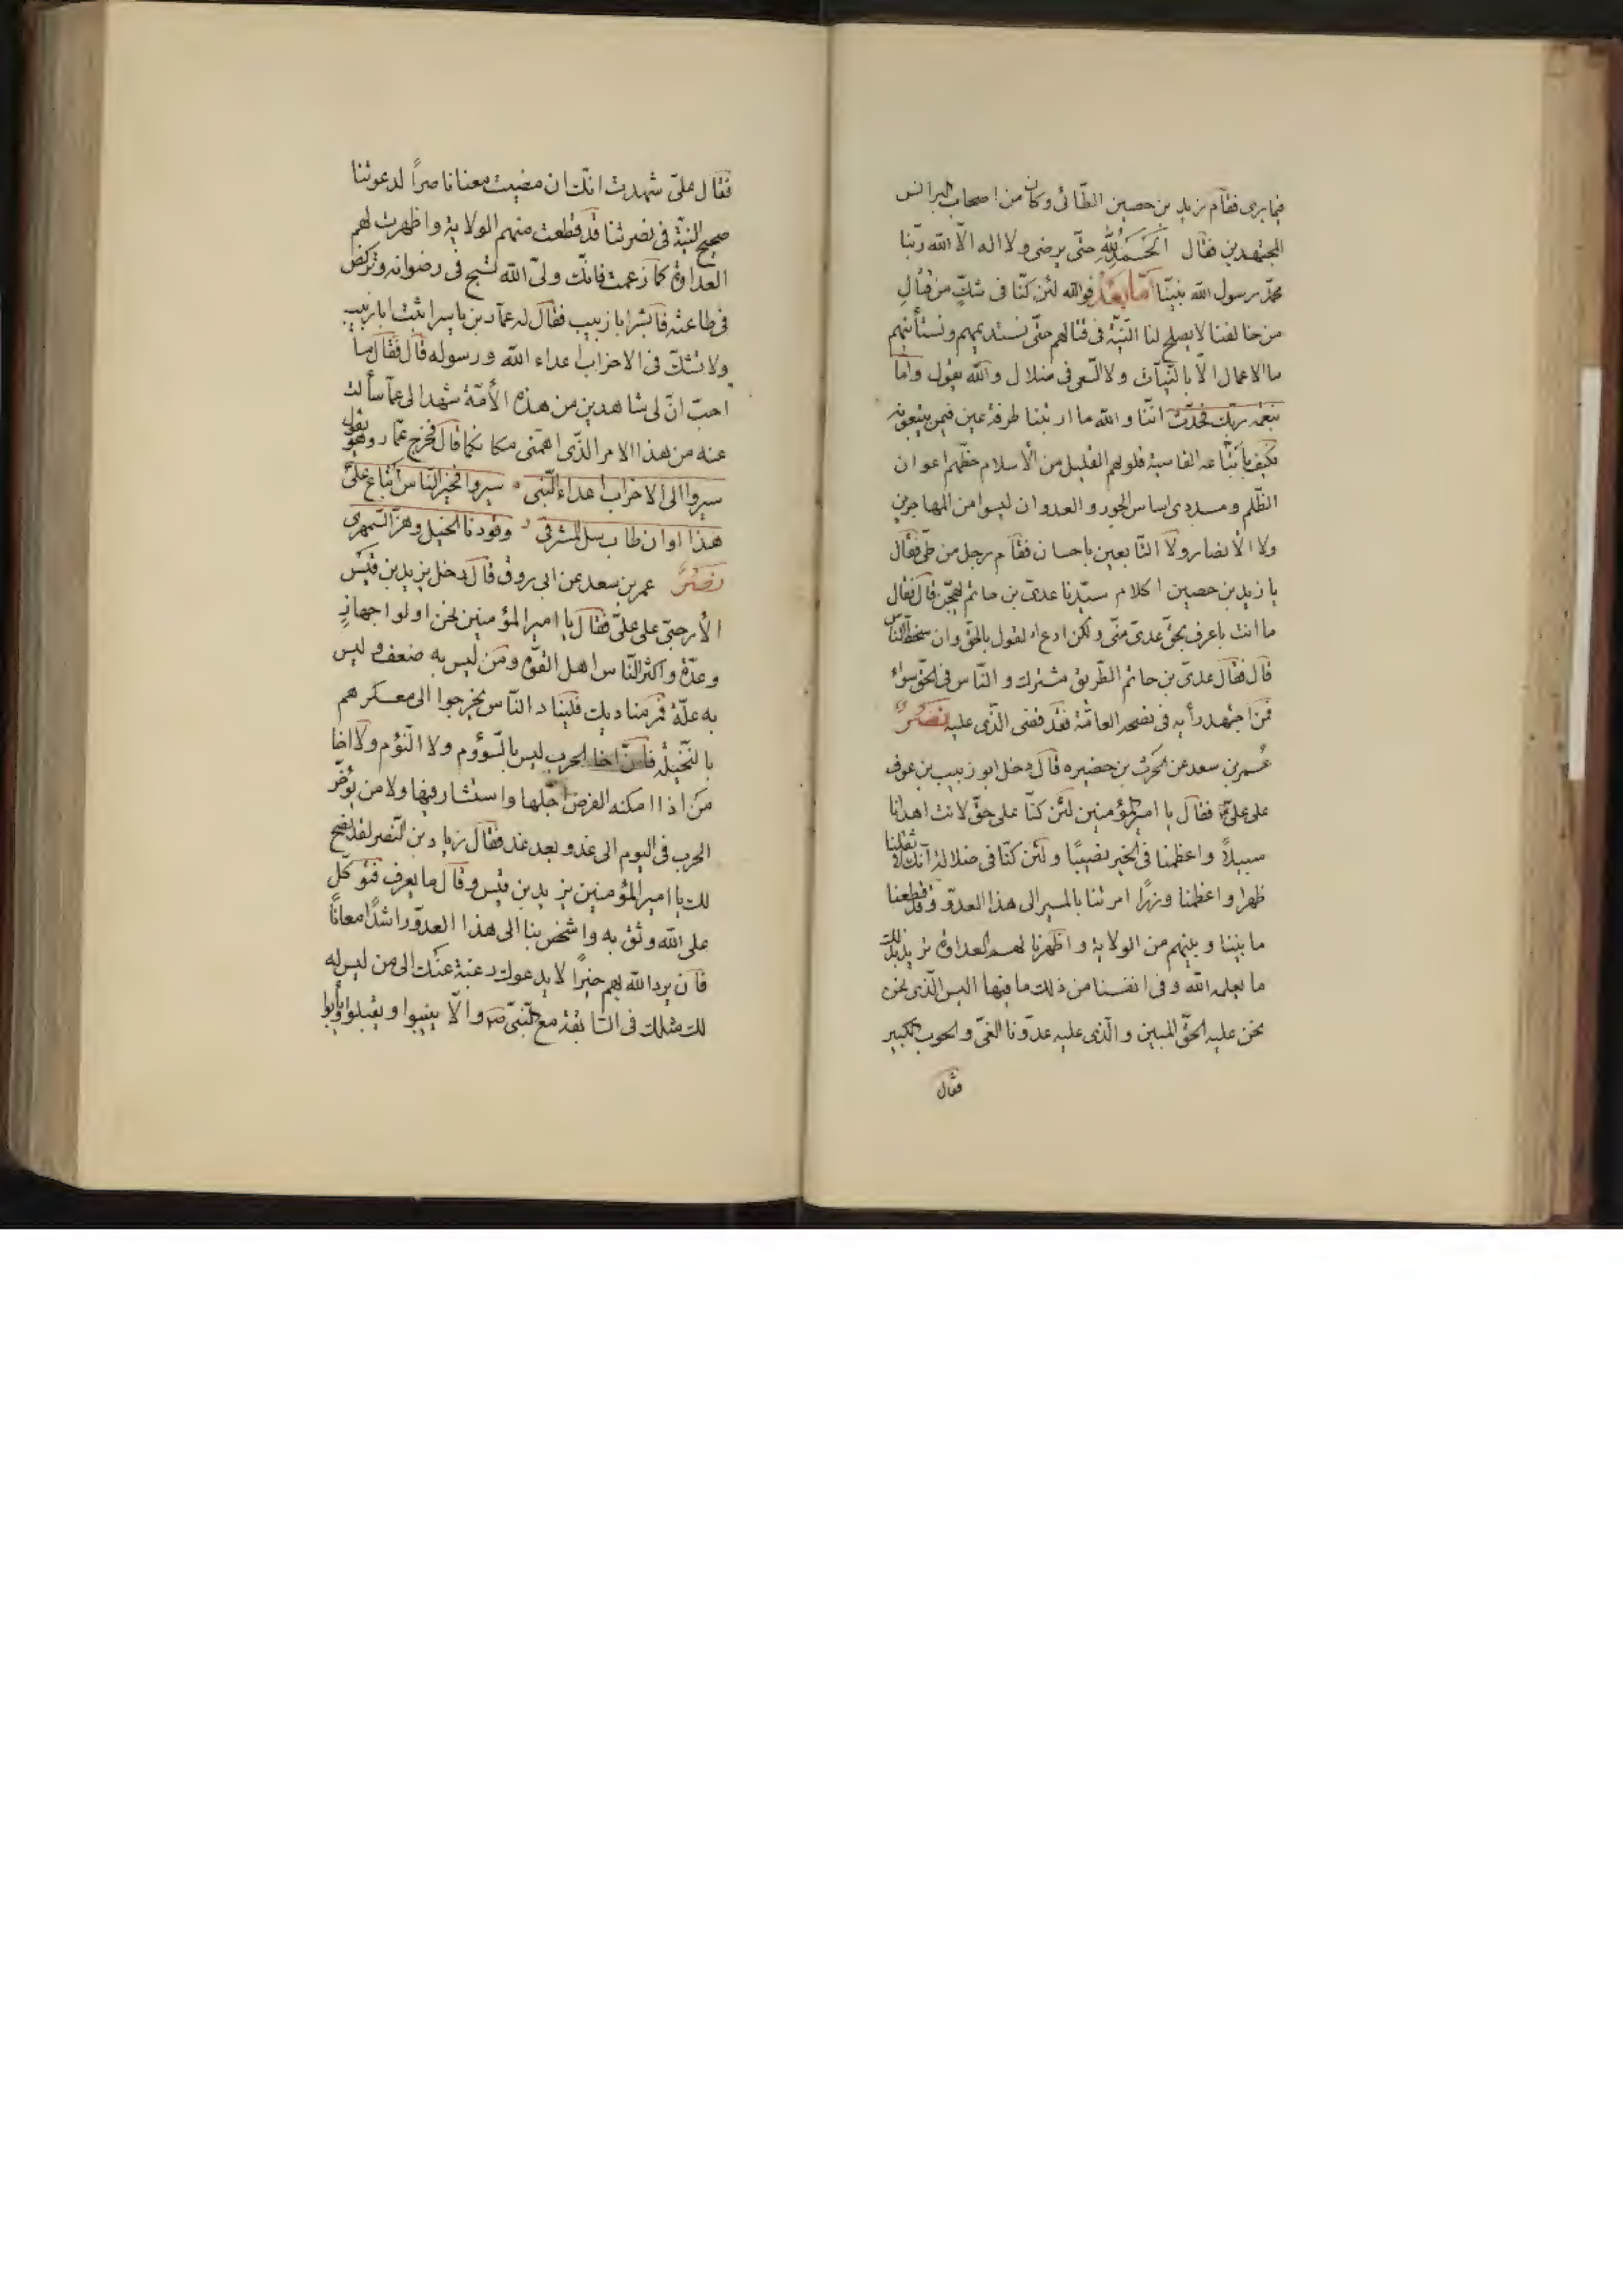 فيما يرى فقام زيد بن حصين الطائى وكان من اصحاب البرانس
المجتهدين فقال الحمد لله حتى يرضى ولا اله الا الله ربنا
محمد رسول الله نبينا اما بعد فوالله لئن كنا فى شك من قتال
من خالفنا لا يصلح لنا النية فى قتالهم حتى نستديمهم ونستأنيهم
ما الاعمال الا بالنيات ولا السعى فى ضلال والله يقول واما
بنعمة ربك فحدث اننا والله ما ارتبنا طرفة عين فيمن يتبعونه
فكيف بأتباعه القاسية قلوبهم القليل من الأسلام حظهم اعوان
الظلم ومسددى اساس الجور والعدوان ليسوا من المهاجرين
ولا الأنصار ولا التابعين باحسان فقام رجل من طى فقال
يا زيد بن حصين اكلام سيدنا عدى بن حاتم تهجن قال فقال
ما انت باعرف بحق عدى منى ولكن ادع القول بالحق وان سخط الناس
قال فقال عدى بن حاتم الطريق مشترك والناس فى الحق سواء
فمن اجتهد رأيه فى نصحه العامة فقد قضى الذى عليه نصر
عمر بن سعد عن الحرث بن حضيره قال دخل ابو زبيب بن عوف
على على فقال يا امير المؤمنين لئن كنا على حق لانت اهدانا
سبيلاً واعظمنا فى الخير نصيبًا ولئن كنا فى ضلالة انك لا ثقلنا
ظهرا واعظمنا وزرًا امرتنا بالمسير الى هذا العدو وقد قطعنا
ما بيننا وبينهم من الولاية واظهرنا لهم العداوة نريد بذلك
ما يعلمه الله وفى انفسنا من ذلك ما فيها اليس الذى نحن
نحن عليه الحق المبين والذى عليه عدونا الغى والحوب الكبير
فقال
فقال على شهدت انك ان مضيت معنا ناصراً لدعوتنا
صحيح النية فى نصرتنا قد قطعت منهم الولاية واظهرت لهم
العداوة كما زعمت فانك ولى الله تسبح فى رضوانه وتركض
فى طاعته فابشر ابا زبيب فقال له عمار بن ياسر اثبت ابا زبيب
ولا تشك فى الاحزاب اعداء الله ورسوله قال فقال ما
احب ان لى شاهدين من هذه الأمة شهدا لى عما سألت
عنه من هذا الامر الذى اهمنى مكانكما قال فخرج عمار وهو يقول
سيروا الى الاحزاب اعداء النبى سيروا فخير الناس اتباع على
هذا اوان طاب سل المشرفى وقودنا الخيل وهز السمهرى
نصر عمر بن سعد عن ابى روق قال دخل يزيد بن قيس
الأرحبى على على فقال يا امير المؤمنين نحن اولوا جهاز
وعدة واكثر الناس اهل القوة ومن ليس به ضعف وليس
به علة فمر مناديك فليناد الناس يخرجوا الى معسكرهم
بالنخيلة فان اخا الحرب ليس بالسؤوم ولا النؤم ولا اخا
من اذا امكنه الفرص اجلها واستشار فيها ولا من يؤخر
الحرب فى اليوم الى غد وبعد غد فقال زياد بن النصر لقد نصح
لك يا امير المؤمنين يزيد بن قيس وقال ما يعرف فتوكل
على الله وثق به واشخص بنا الى هذا العدو راشدًا معانًا
فان يرد الله بهم خيرًا لا يدعوك رغبة عنك الى من ليس له
لك مثلك فى السابقة مع النبى ص والا ينيبوا ويقبلوا ويأبوا